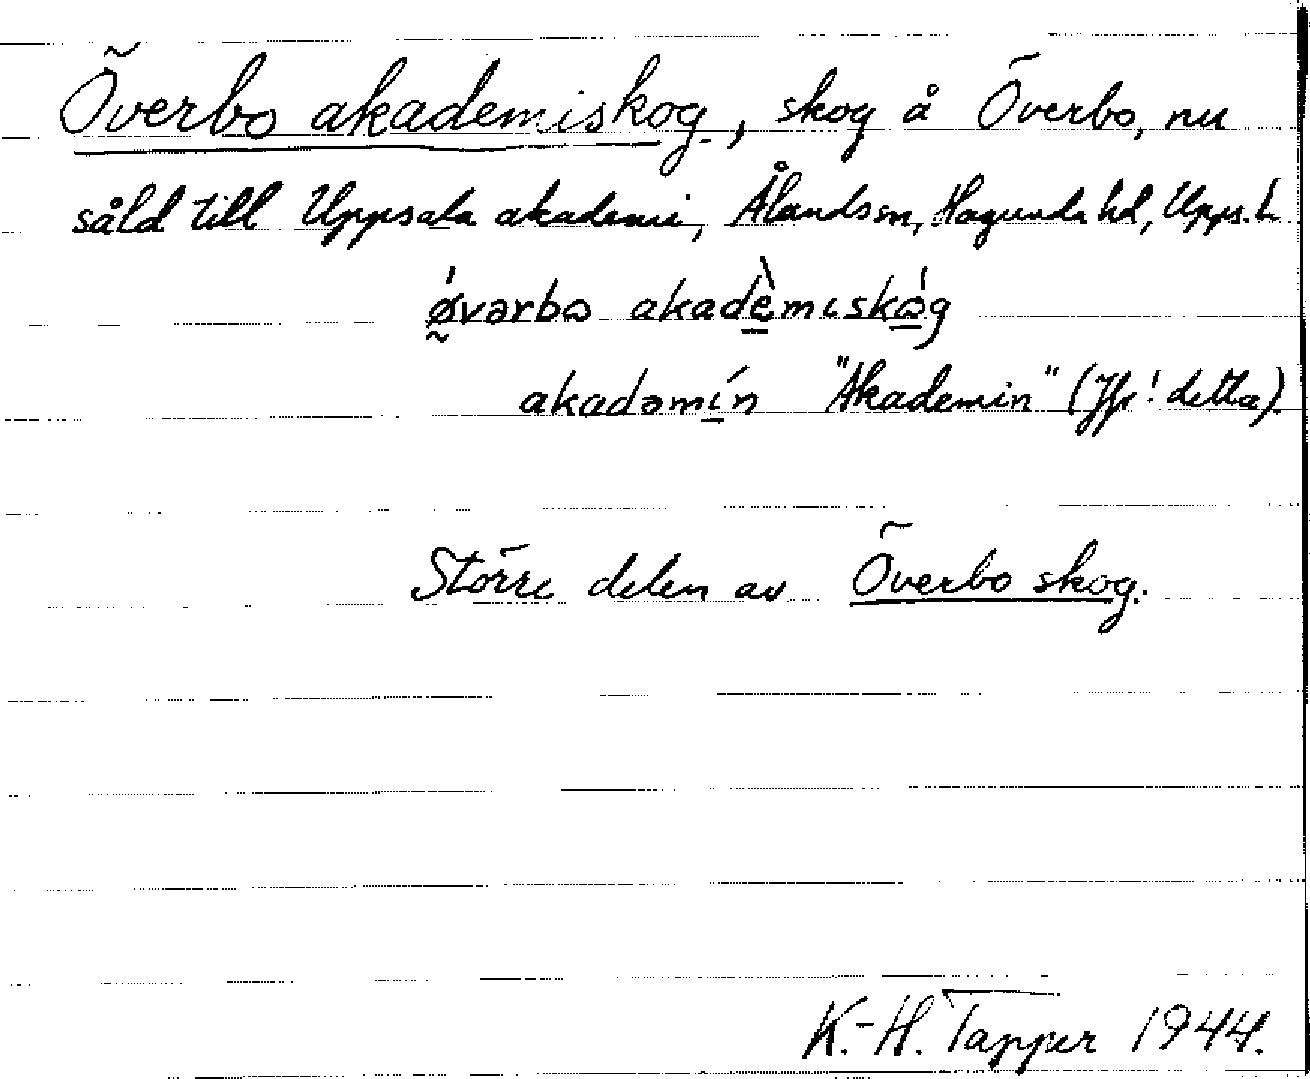 Överbo akademiskog, skog å Överbo, nu
såld till Uppsala akademi, Ålands sn, Hagunda hd, Upps. l.
ǿ̰vərbo akadèmıskóg
akadəmín "Akademin" (Jfr! detta).
Större delen av Överbo skog.
K.-H. Tapper 1944.